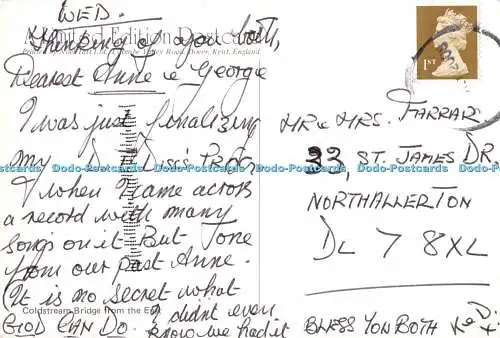 WED.
A Limited Edition Postcard
Thinking of you both,
Dearest Anne & George
I was just finalizing
my D.J. Disc's Prog
when I came across
a record with many
songs on it But one
from our past Anne.
(It is no secret what
GOD CAN DO.
I didn't even
know we had it
Coldstream Bridge from the East
1ST
MR & MRS. FARRAR
33 ST. JAMES DR.
NORTHALLERTON
DL 7 8XL
BLESS YOU BOTH
Dodo-Postcards Dodo-Postcards Dodo-Postcards Dodo-Postcards Dodo-Postcards